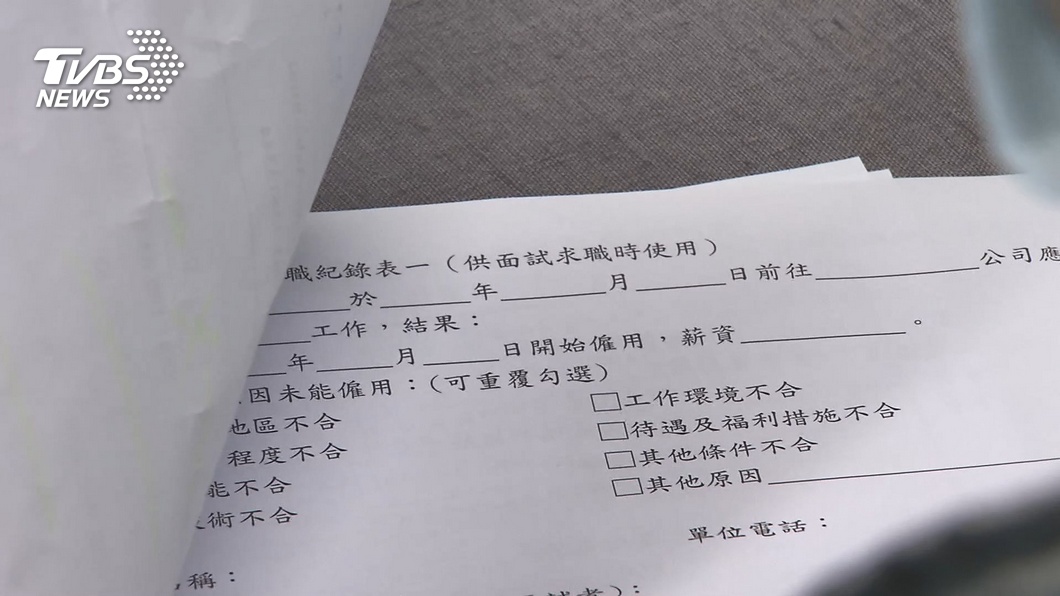 TVBS
NEWS
職紀錄表一（供面試求職時使用）
______於______年______月______日前往__________公司應
____工作，結果：
___年_____月_____日開始僱用，薪資__________。
因未能僱用：(可重覆勾選)
地區不合 □工作環境不合
程度不合 □待遇及福利措施不合
能不合 □其他條件不合
術不合 □其他原因__________
單位電話：
稱：
)：